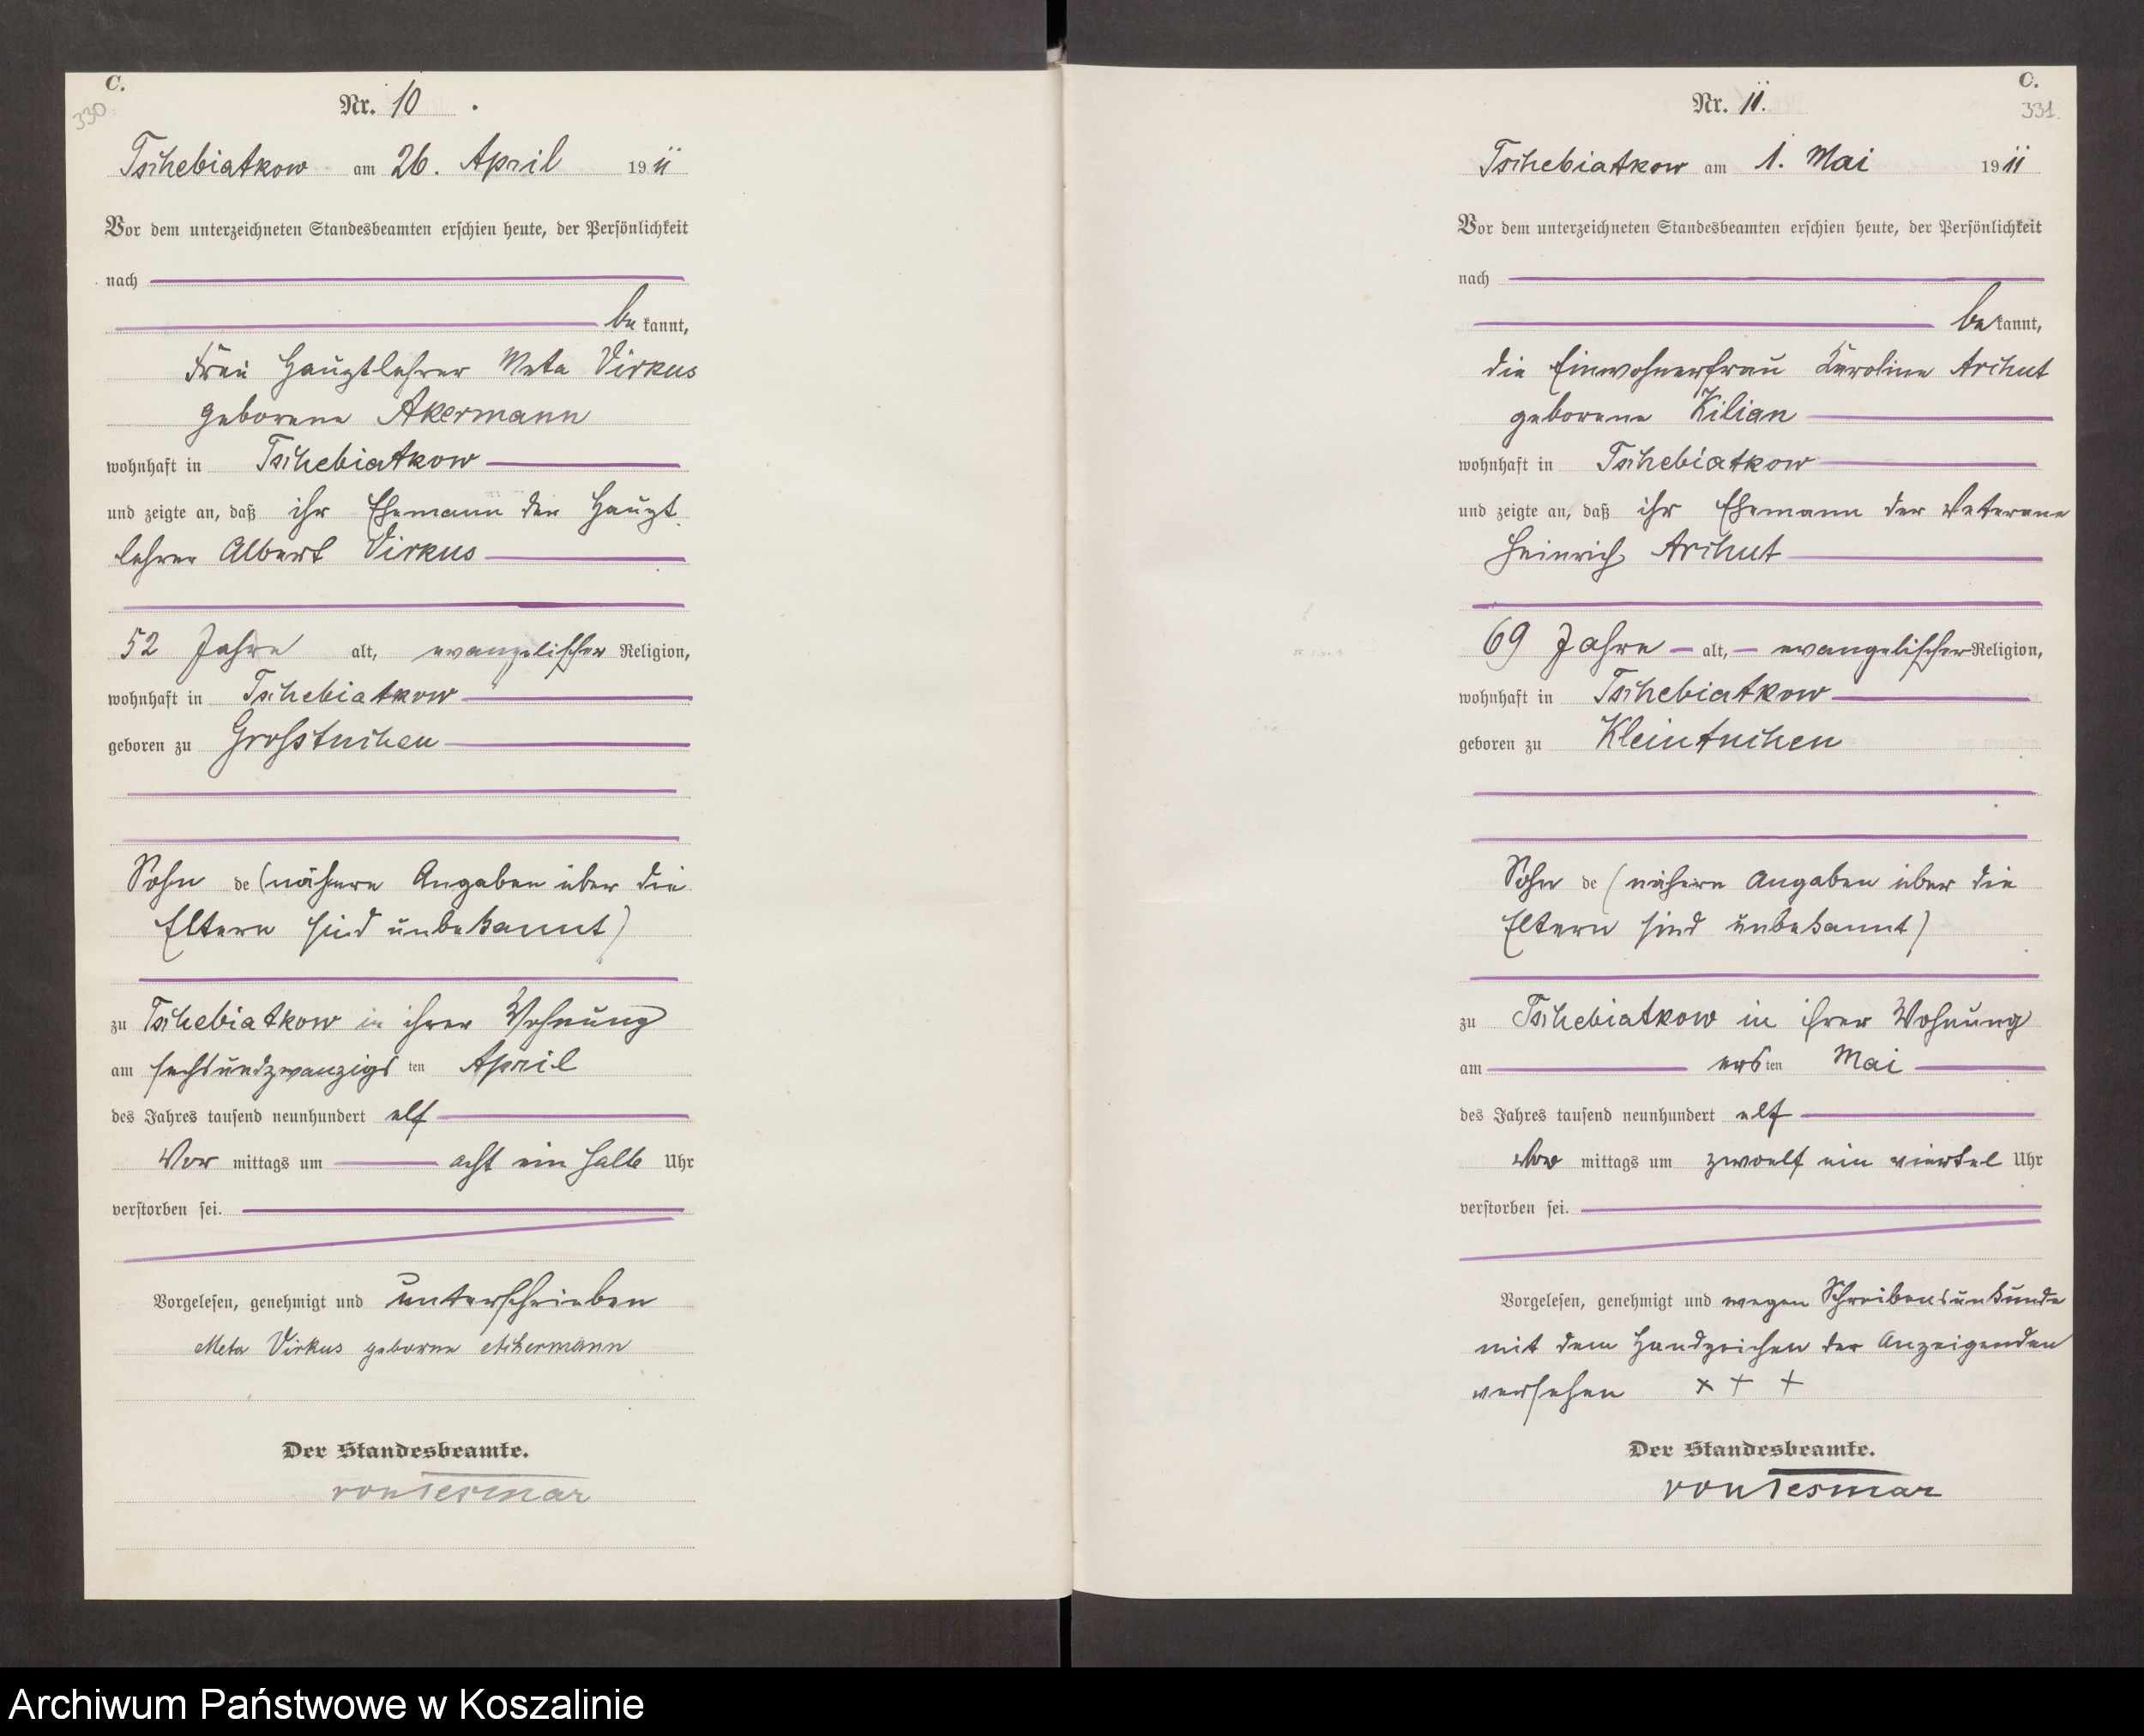 C.
330
Nr. 10
Tschebiatkow am 26. April 1911
Vor dem unterzeichneten Standesbeamten erschien heute, der Persönlichkeit
nach
be kannt,
Frau Hauptlehrer Meta Virkus
geborene Akermann
wohnhaft in Tschebiatkow
und zeigte an, daß ihr Ehemann der Haupt
lehrer Albert Virkus
52 Jahre alt, evangelischer Religion,
wohnhaft in Tschebiatkow
geboren zu Grosstuchen
Sohn de (nähere Angaben über die
Eltern sind unbekannt)
zu Tschebiatkow in ihrer Wohnung
am sechsundzwanzigs ten April
des Jahres tausend neunhundert elf
Vor mittags um acht ein halb Uhr
verstorben sei.
Vorgelesen, genehmigt und unterschrieben
Meta Virkus geborne Ackermann
Der Standesbeamte.
von Tesmar
C.
331
Nr. 11.
Tschebiatkow am 1. Mai 1911
Vor dem unterzeichneten Standesbeamten erschien heute, der Persönlichkeit
nach
be kannt,
die Einwohnerfrau Karoline Archut
geborene Kilian
wohnhaft in Tschebiatkow
und zeigte an, daß ihr Ehemann der Veterane
Heinrich Archut
69 Jahre alt, evangelischer Religion,
wohnhaft in Tschebiatkow
geboren zu Kleintuchen
Sohn de (nähere Angaben über die
Eltern sind unbekannt)
zu Tschebiatkow in ihrer Wohnung
am ers ten Mai
des Jahres tausend neunhundert elf
Vor mittags um zwoelf ein viertel Uhr
verstorben sei.
Vorgelesen, genehmigt und wegen Schreibensunkunde
mit dem Handzeichen der Anzeigenden
versehen x + +
Der Standesbeamte.
von Tesmar
Archiwum Państwowe w Koszalinie